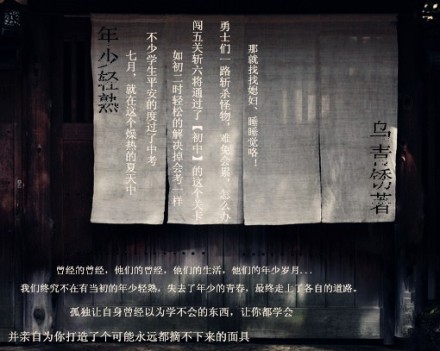 年少轻熟
七月，就在这个燥热的夏天中
不少学生平安的度过了中考
如初二时轻松的解决掉会考一样
闯五关斩六将通过了【初中】的这个关卡
勇士们一路斩杀怪物，难免会累，怎么办
那就找找媳妇、睡睡觉咯！
乌青锈著
曾经的曾经，他们的曾经，他们的生活，他们的年少岁月...
我们终究不在有当初的年少轻熟，失去了年少的青春，最终走上了各自的道路。
孤独让自身曾经以为学不会的东西，让你都学会
并亲自为你打造了个可能永远都摘不下来的面具